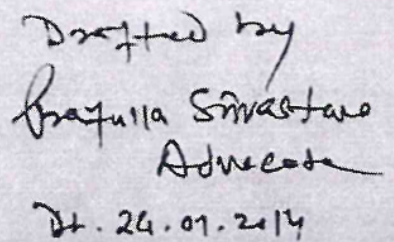 Drafted by
Prafulla Srivastava
Advocate
Dt. 24.01.2014